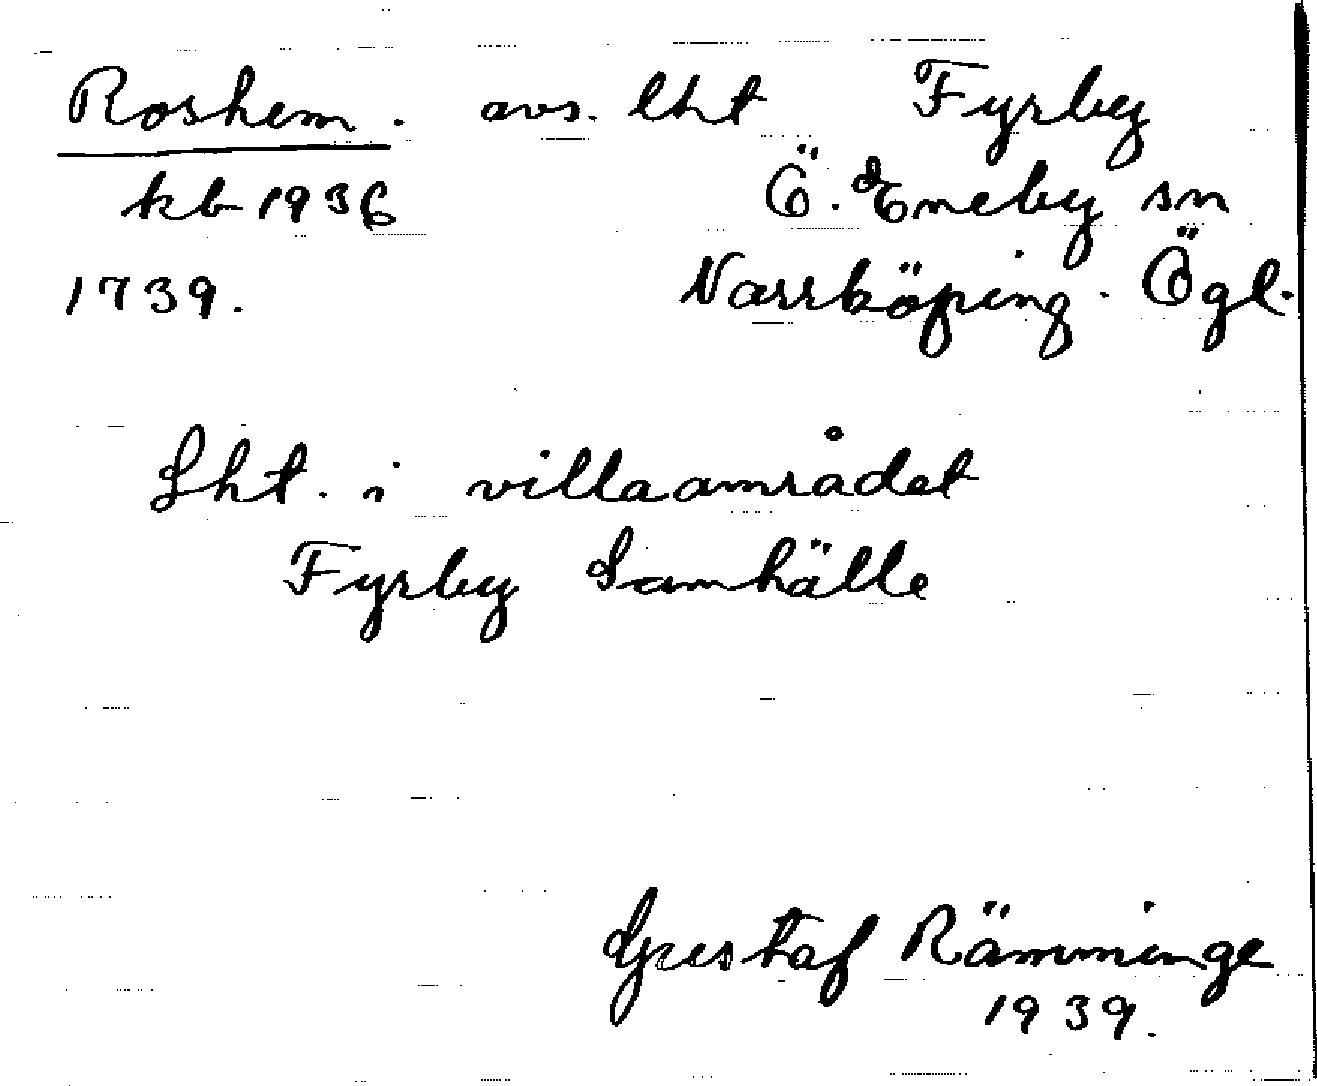 Roshem. avs. lht Fyrby
kb 1936 Ö. Eneby sn
1739. Norrköping. Ögl.
Lht. i villaområdet
Fyrby Samhälle
Gustaf Rämminge
1939.